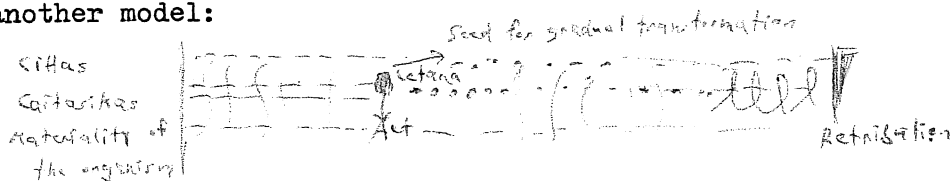 another model:
Seed for gradual transformation
Cittas
Cetanā
Caitasikas
Materiality of
Act
the organism
Retribution